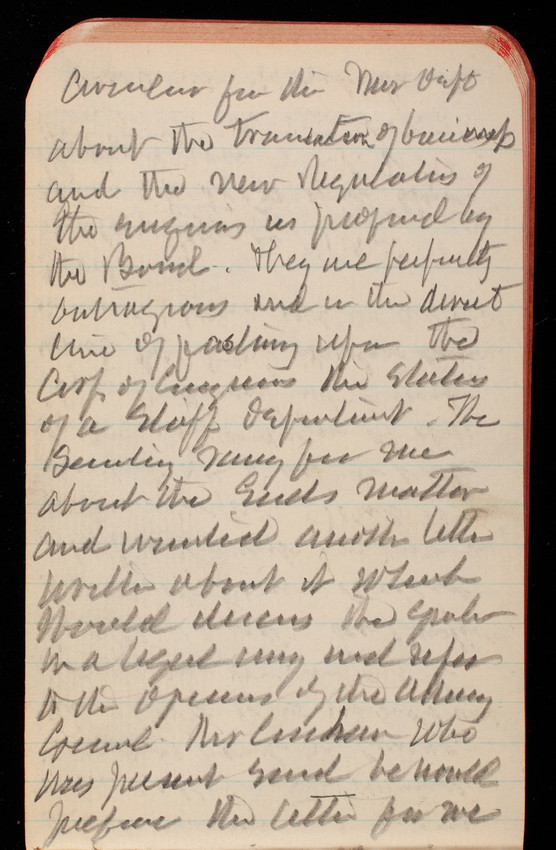 Circular for the War Dept
about the transaction of business
and the new Regulations of
the engineers as prepared by
the Board. They are perfectly
outrageous and in the direct
line of fasting upon the
Corp of Engineers the status
of a Staff Department. The
Secretary rang for me
about the matter
and wanted another letter
written about it which
would discuss the
in a legal way and refer
to the Opinions of the Attorney
General. Mr who
was present said he would
prepare the letter for me